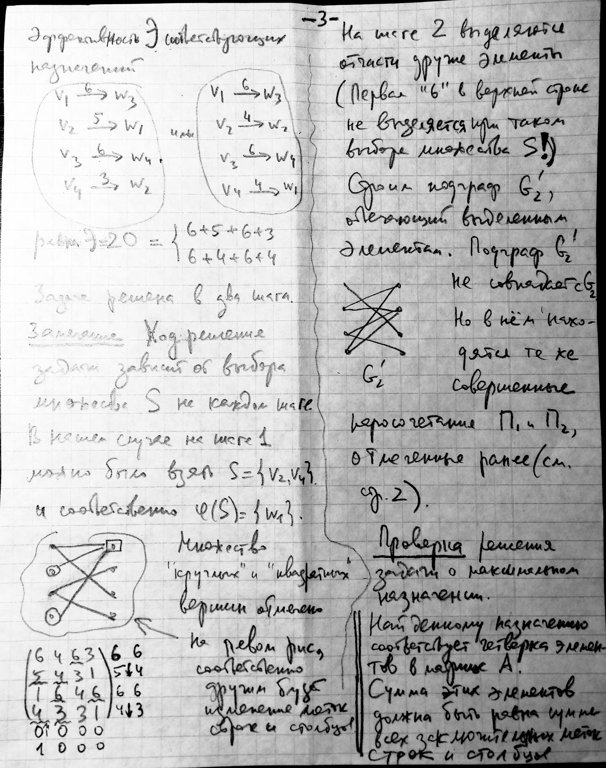 -3-
Эффективность Э соответствующих
назначений
V₁ 6→ W₃
V₂ 5→ W₁
V₃ 6→ W₄
V₄ 3→ W₂
или
V₁ 6→ W₃
V₂ 4→ W₂
V₃ 6→ W₄
V₄ 4→ W₁
равна Э=20 = { 6+5+6+3
6+4+6+4
Задача решена в два шага.
Замечание Ход решения
задачи зависит от выбора
множества S на каждом шаге.
В нашем случае на шаге 1
можно было взять S={V₂,V₄}.
и соответственно φ(S)={W₁}.
Множество
"круглых" и "квадратных"
вершин отмечено
на левом рис,
соответственно
другим будет
изменение меток
строк и столбцов
6 4 6 3 | 6 6
5 4 3 1 | 5↓4
1 6 4 6 | 6 6
4 3 3 1 | 4↓3
0 0 0 0
1 0 0 0
На шаге 2 выделяются
отчасти другие элементы
(Первая "6" в верхней строке
не выделяется при таком
выборе множества S!)
Строим подграф G₂′,
отвечающий выделенным
элементам. Подграф G₂′
не совпадает с G₂
Но в нём нахо-
дятся те же
совершенные
G₂′
паросочетание П₁ и П₂,
отмеченные ранее (см.
стр. 2).
Проверка решения
задачи о максимальном
назначении.
Найденному назначению
соответствует четверка элемен-
тв в матрице A.
Сумма этих элементов
должна быть равна сумме
всех заключительных меток
строк и столбцов